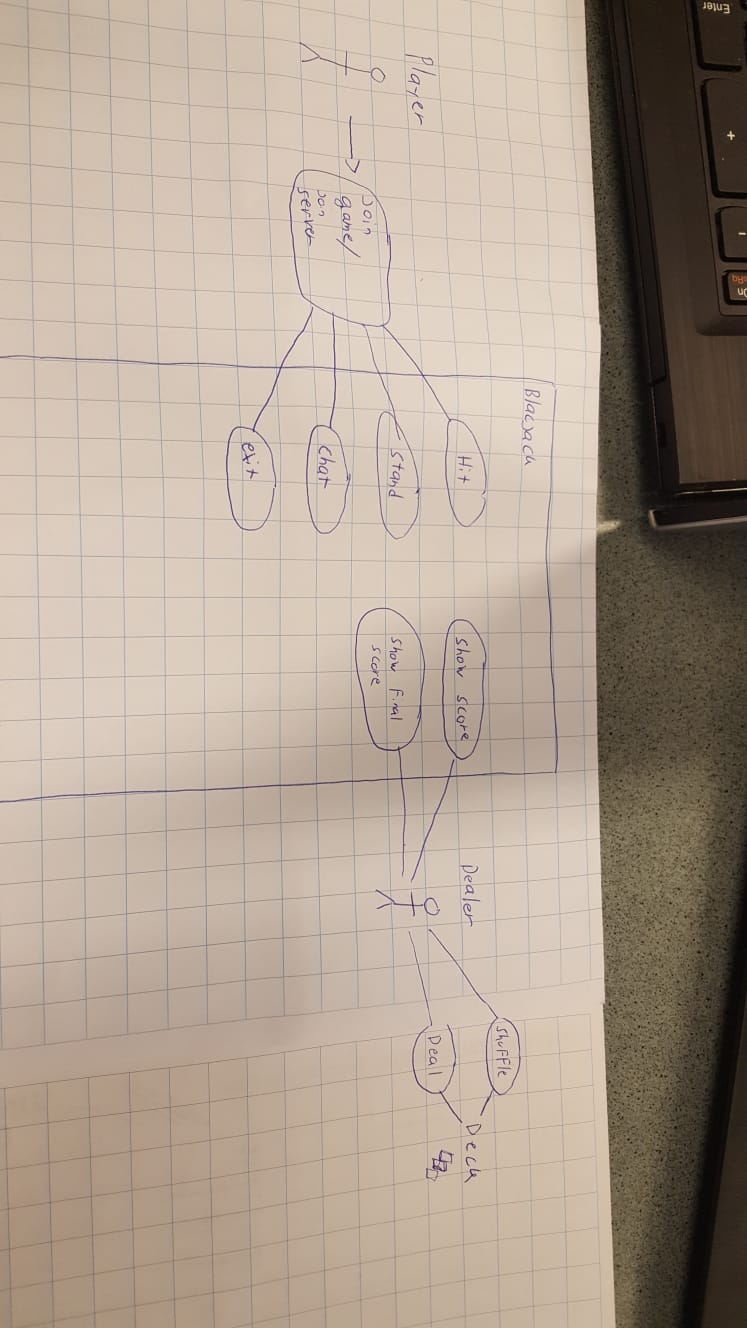 Player
Join
game/
Join
server
Blackjack
Hit
Stand
Chat
exit
Show score
Show final
score
Dealer
Shuffle
Deal
Deck
Enter
+
-